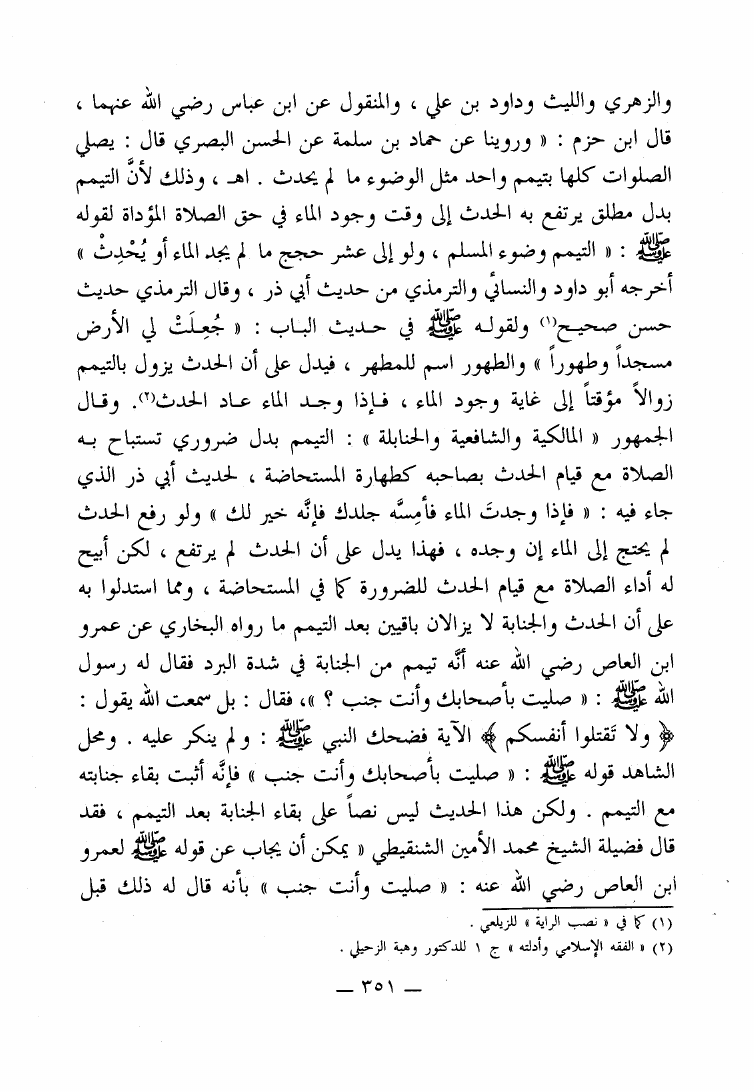 والزهري والليث وداود بن علي ، والمنقول عن ابن عباس رضي الله عنهما ،
قال ابن حزم : « وروينا عن حماد بن سلمة عن الحسن البصري قال : يصلي
الصلوات كلها بتيمم واحد مثل الوضوء ما لم يحدث . اهـ ، وذلك لأنَّ التيمم
بدل مطلق يرتفع به الحدث إلى وقت وجود الماء في حق الصلاة المؤداة لقوله
ﷺ : « التيمم وضوء المسلم ، ولو إلى عشر حجج ما لم يجد الماء أو يُحْدِثْ »
أخرجه أبو داود والنسائي والترمذي من حديث أبي ذر ، وقال الترمذي حديث
حسن صحيح(١) ولقولـه ﷺ في حـديث البـاب : « جُعِلَتْ لي الأرض
مسجداً وطهوراً » والطهور اسم للمطهر ، فيدل على أن الحدث يزول بالتيمم
زوالاً مؤقتاً إلى غاية وجود الماء ، فـإذا وجـد الماء عـاد الحدث(٢). وقـال
الجمهور « المالكية والشافعية والحنابلة » : التيمم بدل ضروري تستباح بـه
الصلاة مع قيام الحدث بصاحبه كطهارة المستحاضة ، لحديث أبي ذر الذي
جاء فيه : « فإذا وجدتَ الماء فأمِسَّه جلدك فإنَّه خير لك » ولو رفع الحدث
لم يحتج إلى الماء إن وجده ، فهذا يدل على أن الحدث لم يرتفع ، لكن أبيح
له أداء الصلاة مع قيام الحدث للضرورة كما في المستحاضة ، ومما استدلوا به
على أن الحدث والجنابة لا يزالان باقيين بعد التيمم ما رواه البخاري عن عمرو
ابن العاص رضي الله عنه أنَّه تيمم من الجنابة في شدة البرد فقال له رسول
الله ﷺ : « صليت بأصحابك وأنت جنب ؟ »، فقال : بل سمعت الله يقول :
﴿ ولا تَقتلوا أنفسكم ﴾ الآية فضحك النبي ﷺ : ولم ينكر عليه . ومحل
الشاهد قوله ﷺ : « صليت بأصحابك وأنت جنب » فإنَّه أثبت بقاء جنابته
مع التيمم . ولكن هذا الحديث ليس نصاً على بقاء الجنابة بعد التيمم ، فقد
قال فضيلة الشيخ محمد الأمين الشنقيطي « يمكن أن يجاب عن قوله ﷺ لعمرو
ابن العاص رضي الله عنه : « صليت وأنت جنب » بأنه قال له ذلك قبل
(١) كما في « نصب الراية » للزيلعي .
(٢) « الفقه الإسلامي وأدلته » ج ١ للدكتور وهبة الزحيلي .
— ٣٥١ —